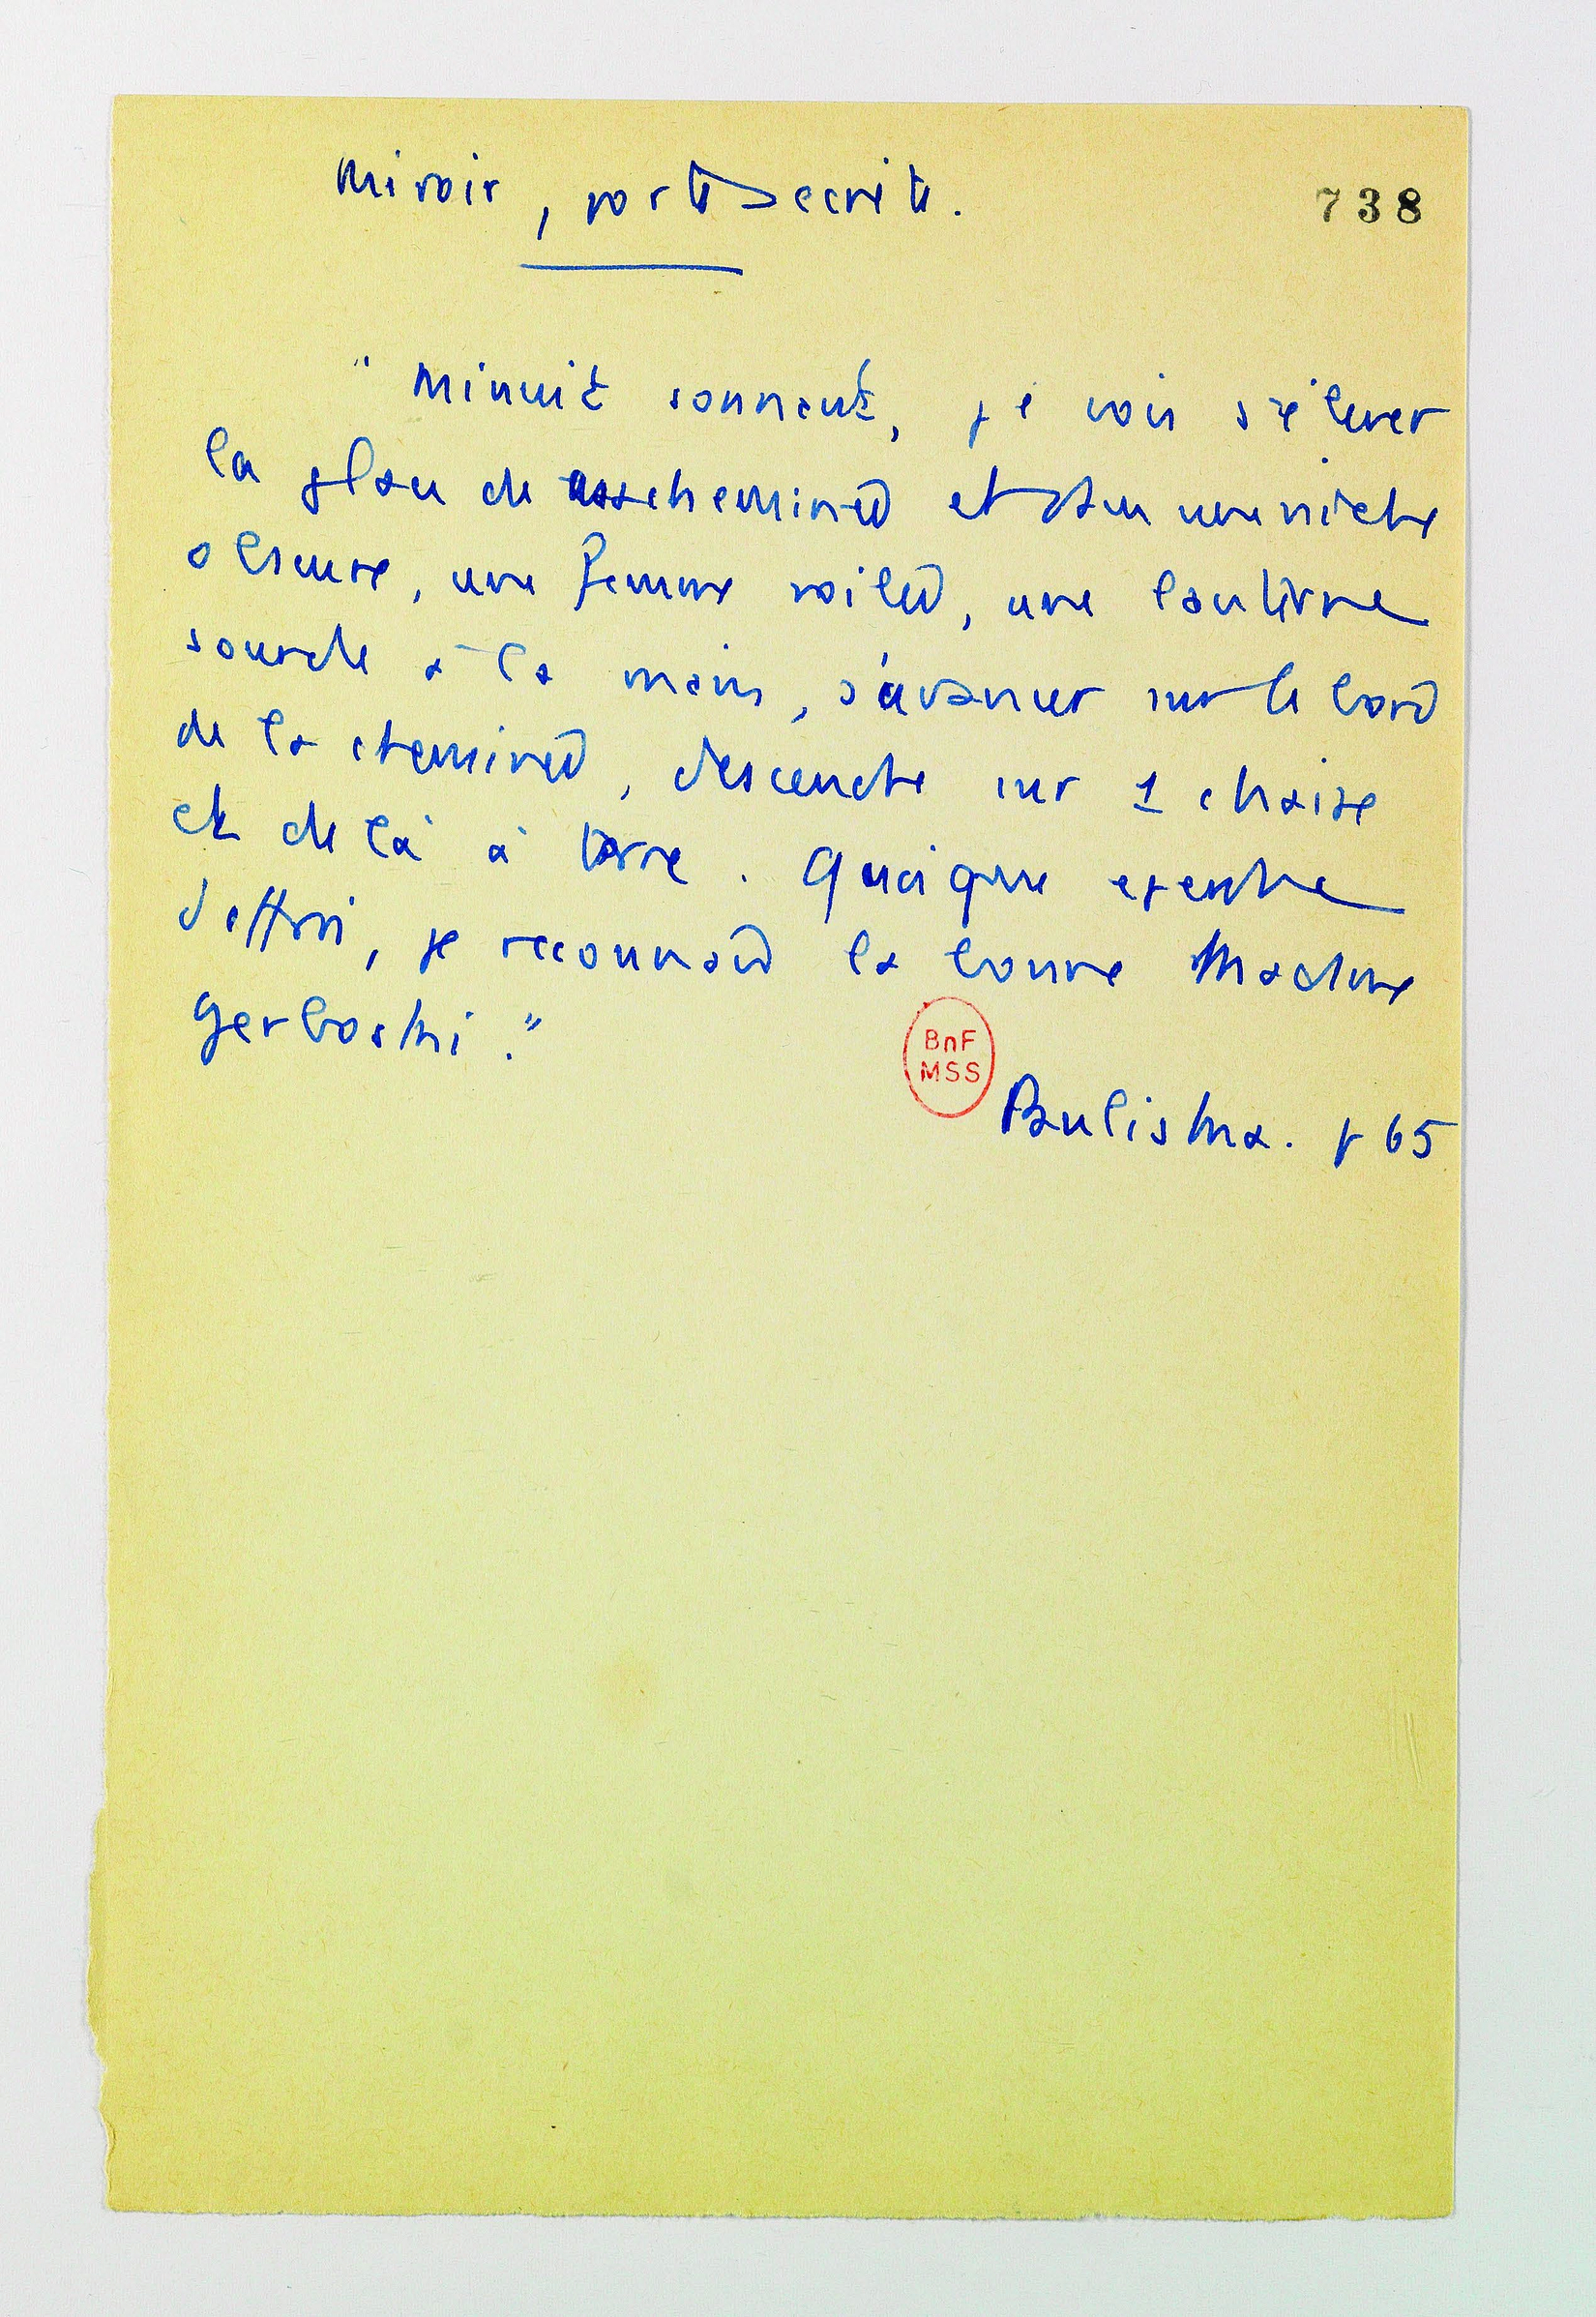 Miroir, porte secrète.
738
" Minuit sonnant, je vois s'élever
la glace de ma cheminée et dans une niche
obscure, une femme voilée, une lanterne
sourde à la main, s'avancer sur le bord
de la cheminée, descendre sur 1 chaise
et de là à terre. Quoique exempte
d'effroi, je reconnais la bonne Madame
Gerboski."
BnF
MSS
Pauliska. p 65